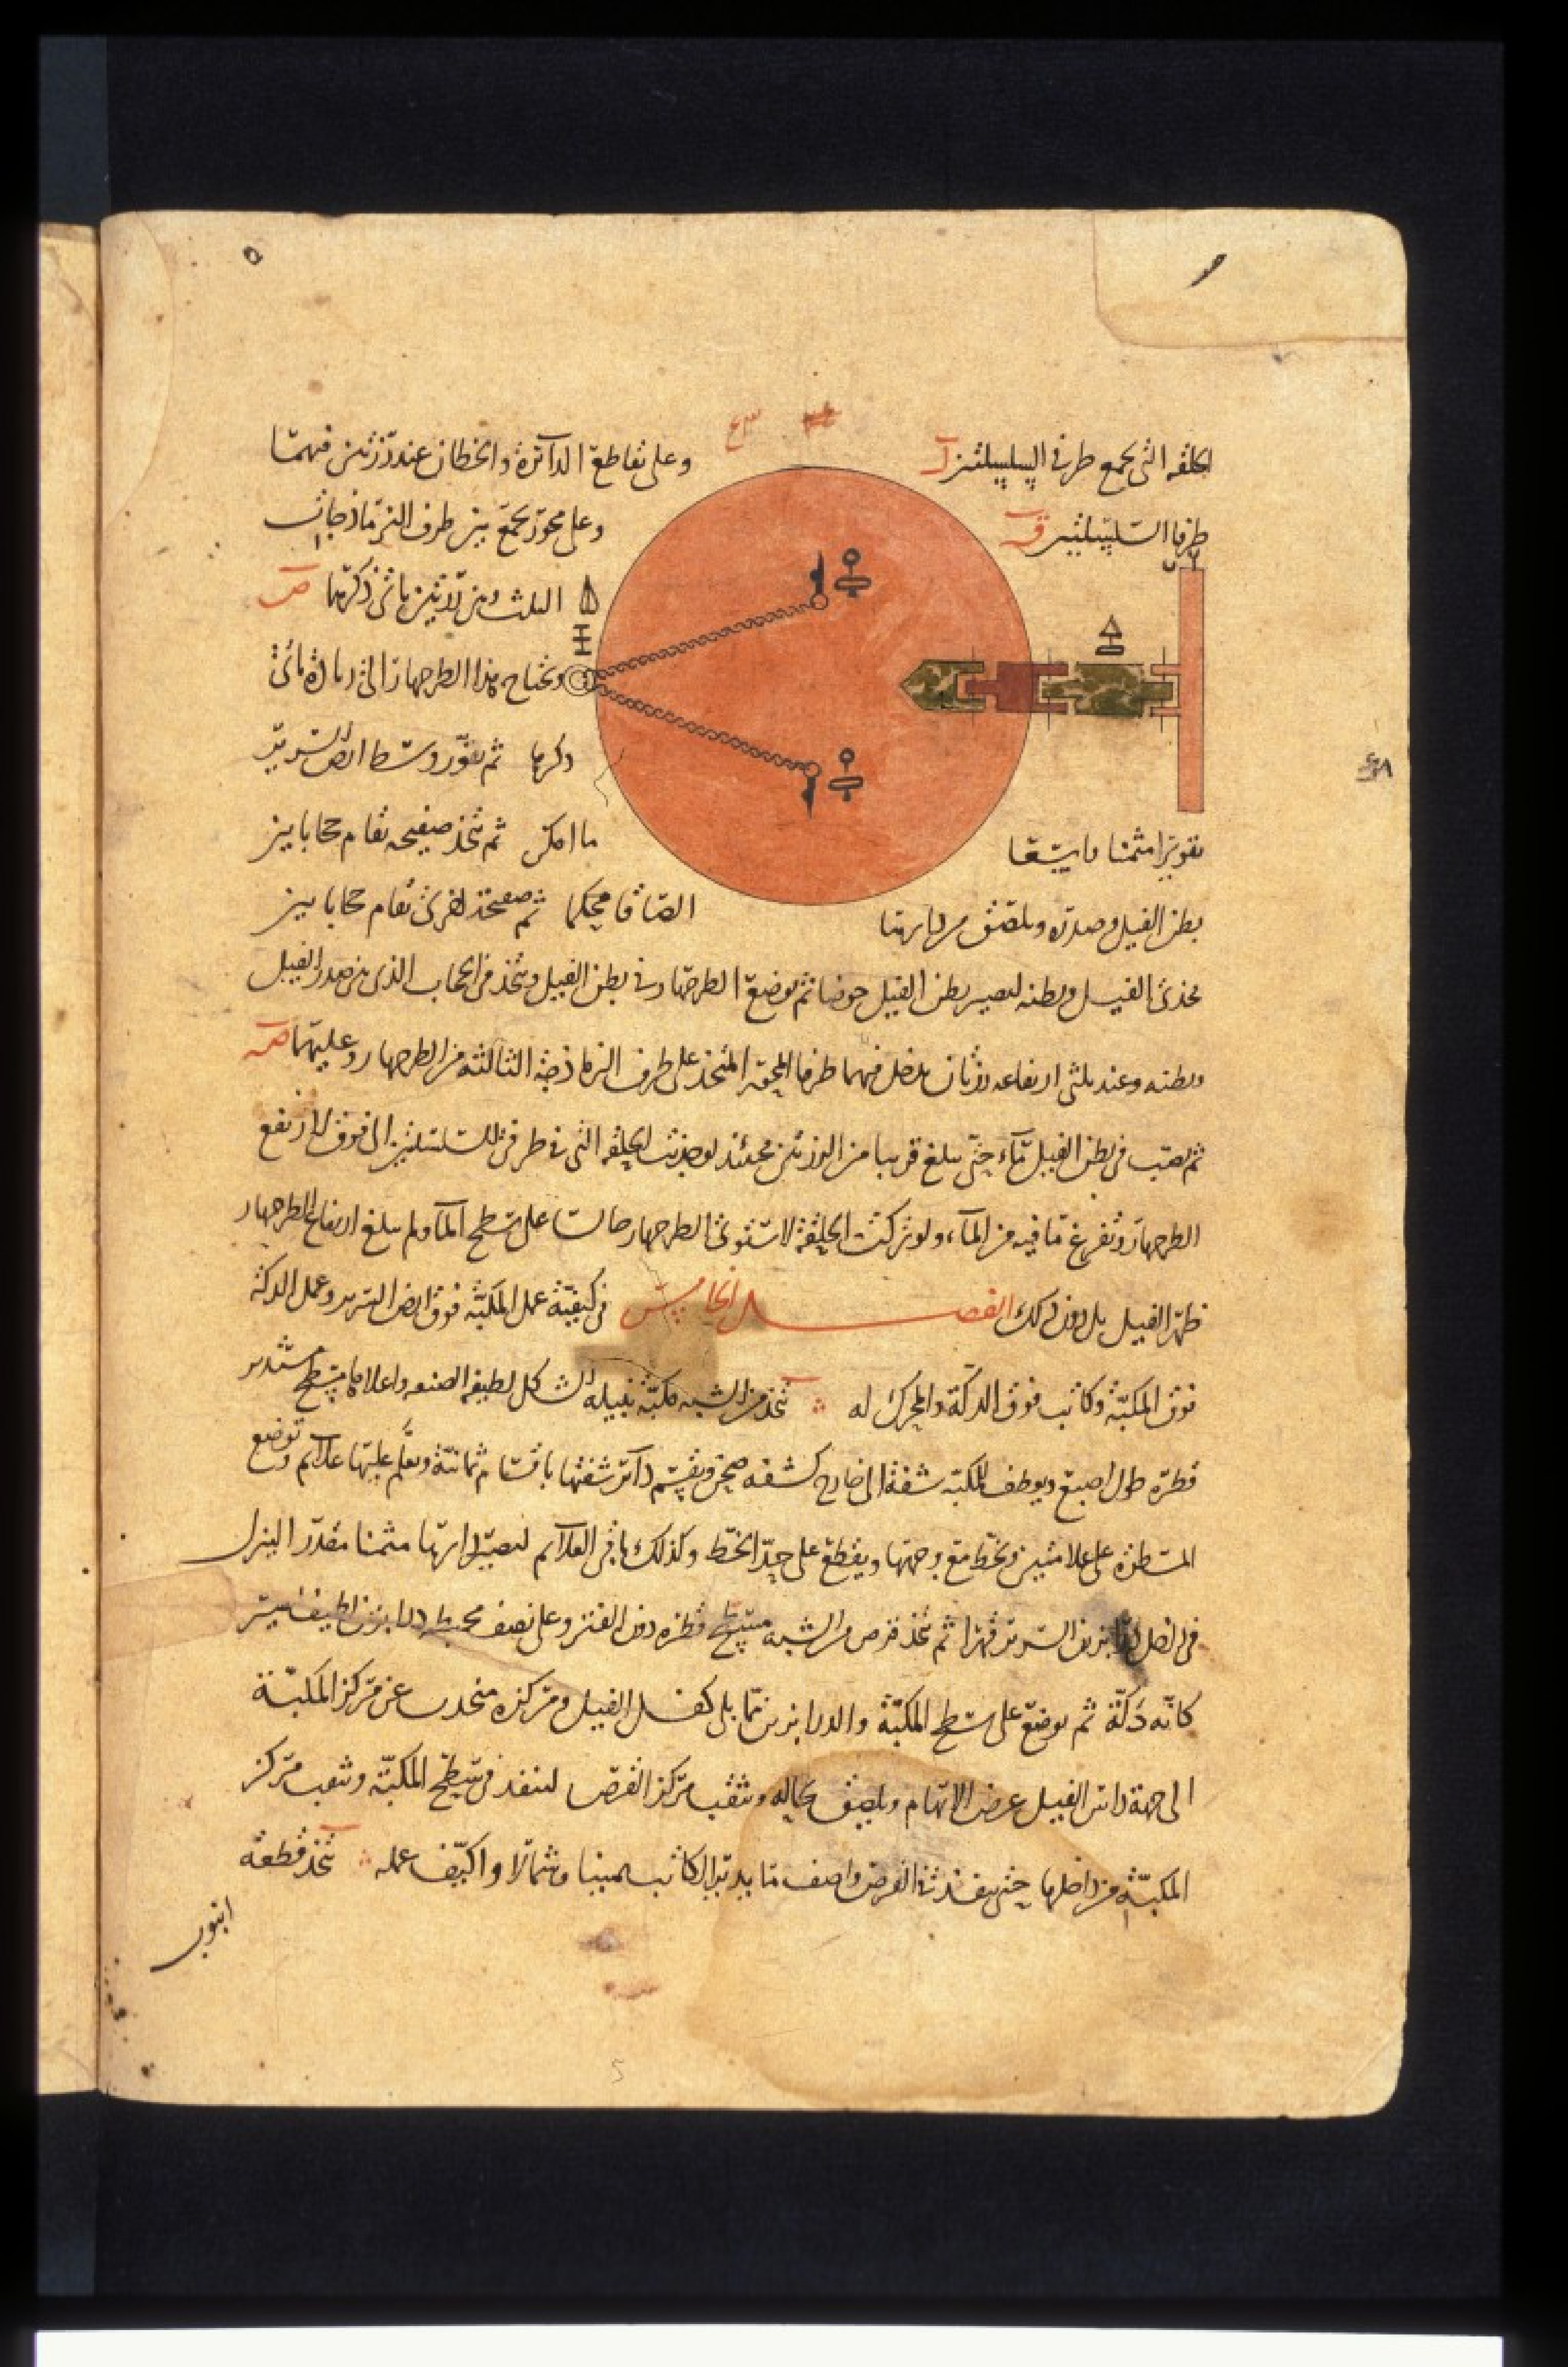 الحلقه التى تجمع طرفى السلسلتين آ وعلى تقاطع الدائرة والخطان عند رزتين فيهما
طرفا السلسلتين وعلى محور يجمع بين طرف النرماذجات
الثلث رزتين ذكرتهما ص
ويحتاج هذا الطرجهار الى زيادة يأتى
ذكرها ثم يقور وسط ارض السرير
تقويرا مثمنا واسعا ما امكن ثم يتخذ صفيحه تقام حجابا بين
بطن الفيل وصدره ويلصق الصاقا محكما ثم صفيحة اخرى تقام حجابا بين
فخذى الفيل وبطنه ليصير بطن الفيل حوضا ثم يوضع الطرجهار فى بطن الفيل ويتخذ فى الحجاب الذى بين صدر الفيل
وبطنه وعند ثلثى ارتفاعه رزتان يدخل فيهما طرفا المحور المتخذ على طرف النرماذجة الثالثة من الطرجهار وعليهما
ثم يصب فى بطن الفيل ماء حتى يبلغ قريبا من الرزتين فحينئذ لو جذبت الحلقه التى فى طرفى السلسلتين الى فوق لارتفع
الطرجهار وتفرغ ما فيه من الماء ولو تركت الحلقة لاستوى الطرجهار جالسا على سطح الماء ولم يبلغ ارتفاع الطرجهار
ظهر الفيل بل دون ذلك الفصل الخامس فى كيفية عمل المكبة فوق ارض السرير وعمل الدكة
فوق المكبة وكاتب فوق الدكة والمحرك له يتخذ من الشبه مكبة نبيلة الشكل لطيفه الصنعه واعلاها مسطح مستدير
قطره طول اصبع ويعطف للمكبه شفة الى خارج كشفه صحن ويقسم دائر شفتها باقسام ثمانية ويعلم عليها علائم وتوضع
المسطرة على علامتين ويخط مع وجهتها ويقطع على حد الخط وكذلك باقى العلائم ليصير دائرتها مثمنا مقدر النزل
فى داخل درابزين السرير قهرا ثم يتخذ قرص من الشبه مسطح قطره دون الفتر وعلى نصف محيطه درابزين لطيف
كانه دكة ثم يوضع على سطح المكبة والدرابزين مما يلى كفل الفيل ومركزه منحدر عن مركز المكبة
الى جهة راس الفيل عرض الابهام ويلصق بحاله ويثقب مركز القرص لينفذ فى سطح المكبة ويثقب مركز
المكبة من داخلها حتى ينفذ فى القرص واصف ما يدير الكاتب يمينا وشمالا واكيف عمله يتخذ قطعة
انبوب